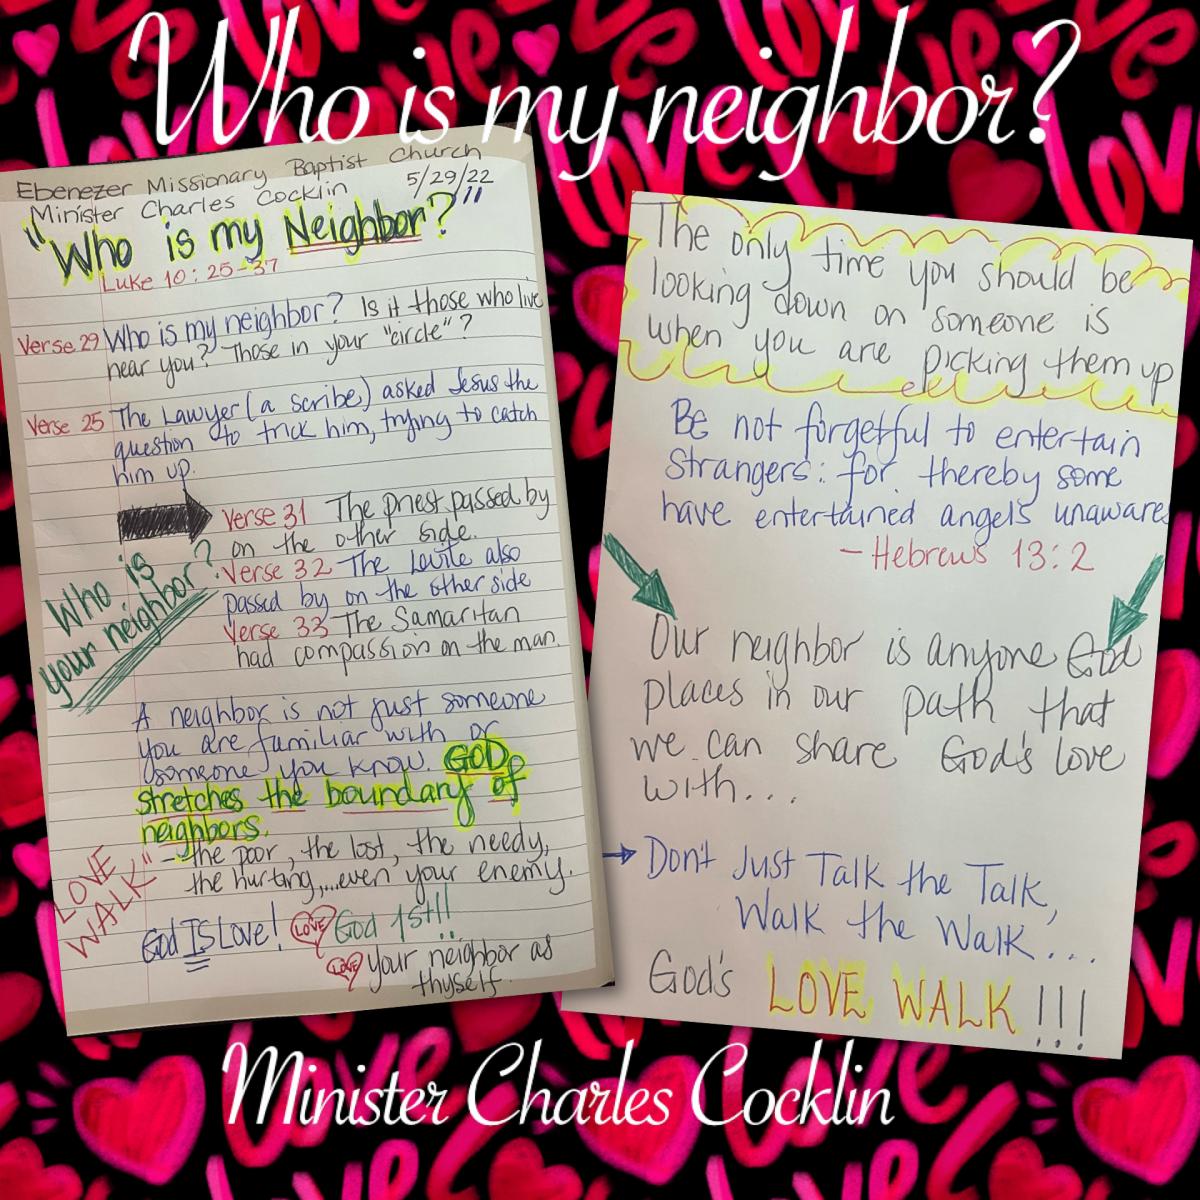 Who is my neighbor?
Ebenezer Missionary Baptist Church
Minister Charles Cocklin 5/29/22
"Who is my Neighbor?"
Luke 10:25-37
Verse 29 Who is my neighbor? Is it those who live
near you? Those in your "circle"?
Verse 25 The Lawyer (a scribe) asked Jesus the
question to trick him, trying to catch
him up.
Verse 31 The priest passed by
on the other side.
Verse 32 The Levite also
passed by on the other side
Verse 33 The Samaritan
had compassion on the man.
Who is
your neighbor?
A neighbor is not just someone
you are familiar with or
someone you know. GOD
stretches the boundary of
neighbors.
- the poor, the lost, the needy,
the hurting,...even your enemy.
LOVE
WALK"
God IS Love! LOVE God 1st!!!
LOVE your neighbor as
thyself.
The only time you should be
looking down on someone is
when you are picking them up
Be not forgetful to entertain
strangers: for thereby some
have entertained angels unawares
- Hebrews 13:2
Our neighbor is anyone God
places in our path that
we can share God's love
with...
Don't Just Talk the Talk,
Walk the Walk...
God's LOVE WALK!!!
Minister Charles Cocklin